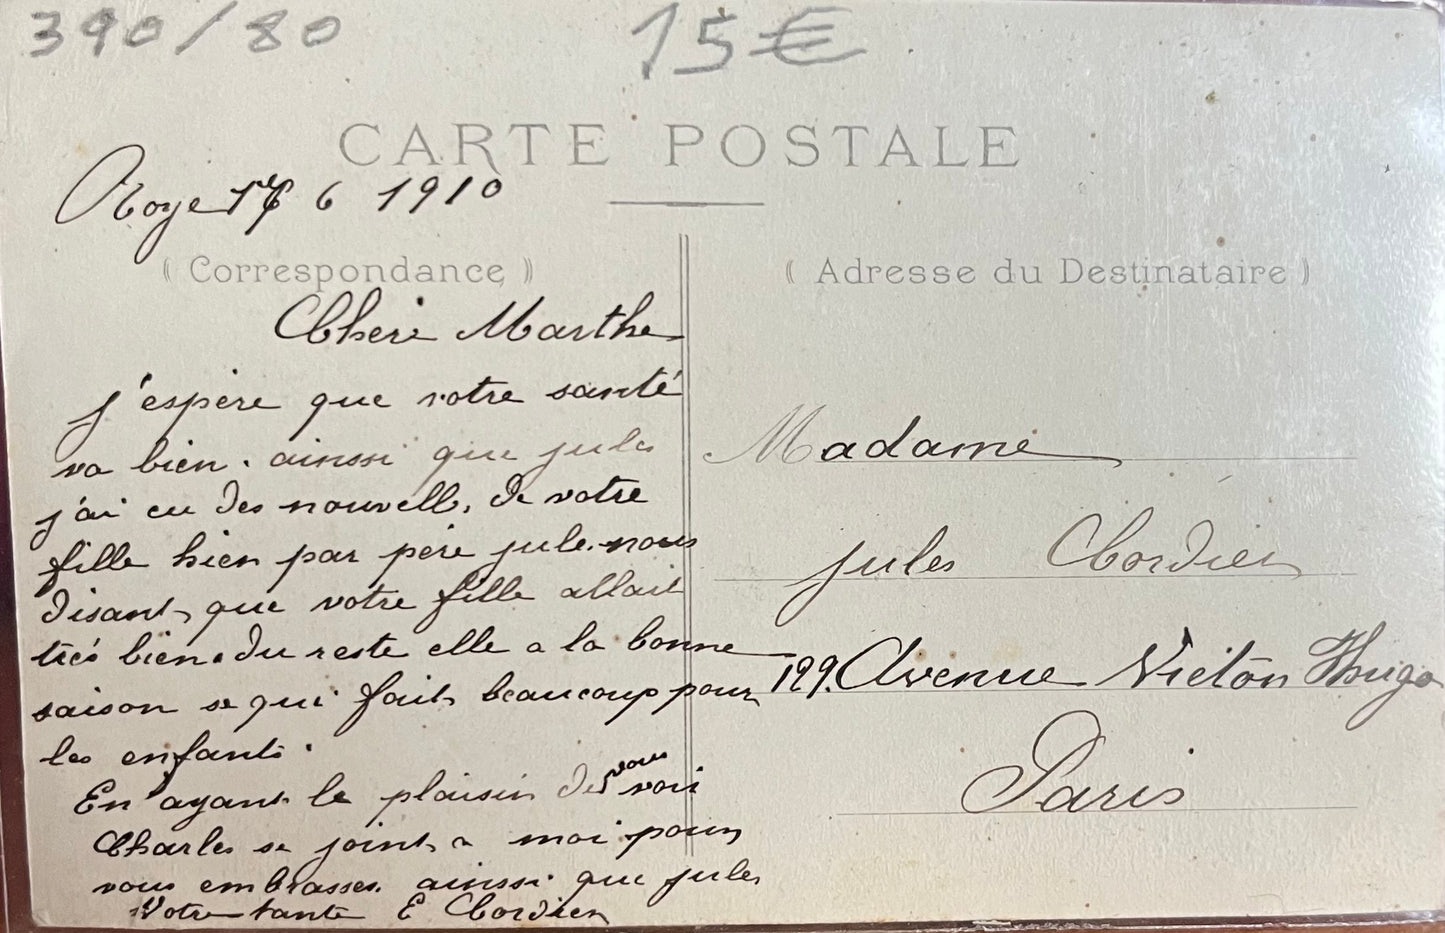 390/80
15€
CARTE POSTALE
Roye 17 6 1910
(Correspondance)
Chere Marthe
j'espère que votre santé
va bien. ainsi que jules
j'ai eu des nouvell, de votre
fille hier par père jules nous
disant que votre fille allait
très bien. du reste elle a la bonne
saison se qui fait beaucoup pour
les enfants.
En ayant le plaisir de vous voir
Charles se joint a moi pour
vous embrasses. ainssi que jules
Votre tante E Cordier
(Adresse du Destinataire)
Madame
jules Cordier
199. Avenue Victor Hugo
Paris